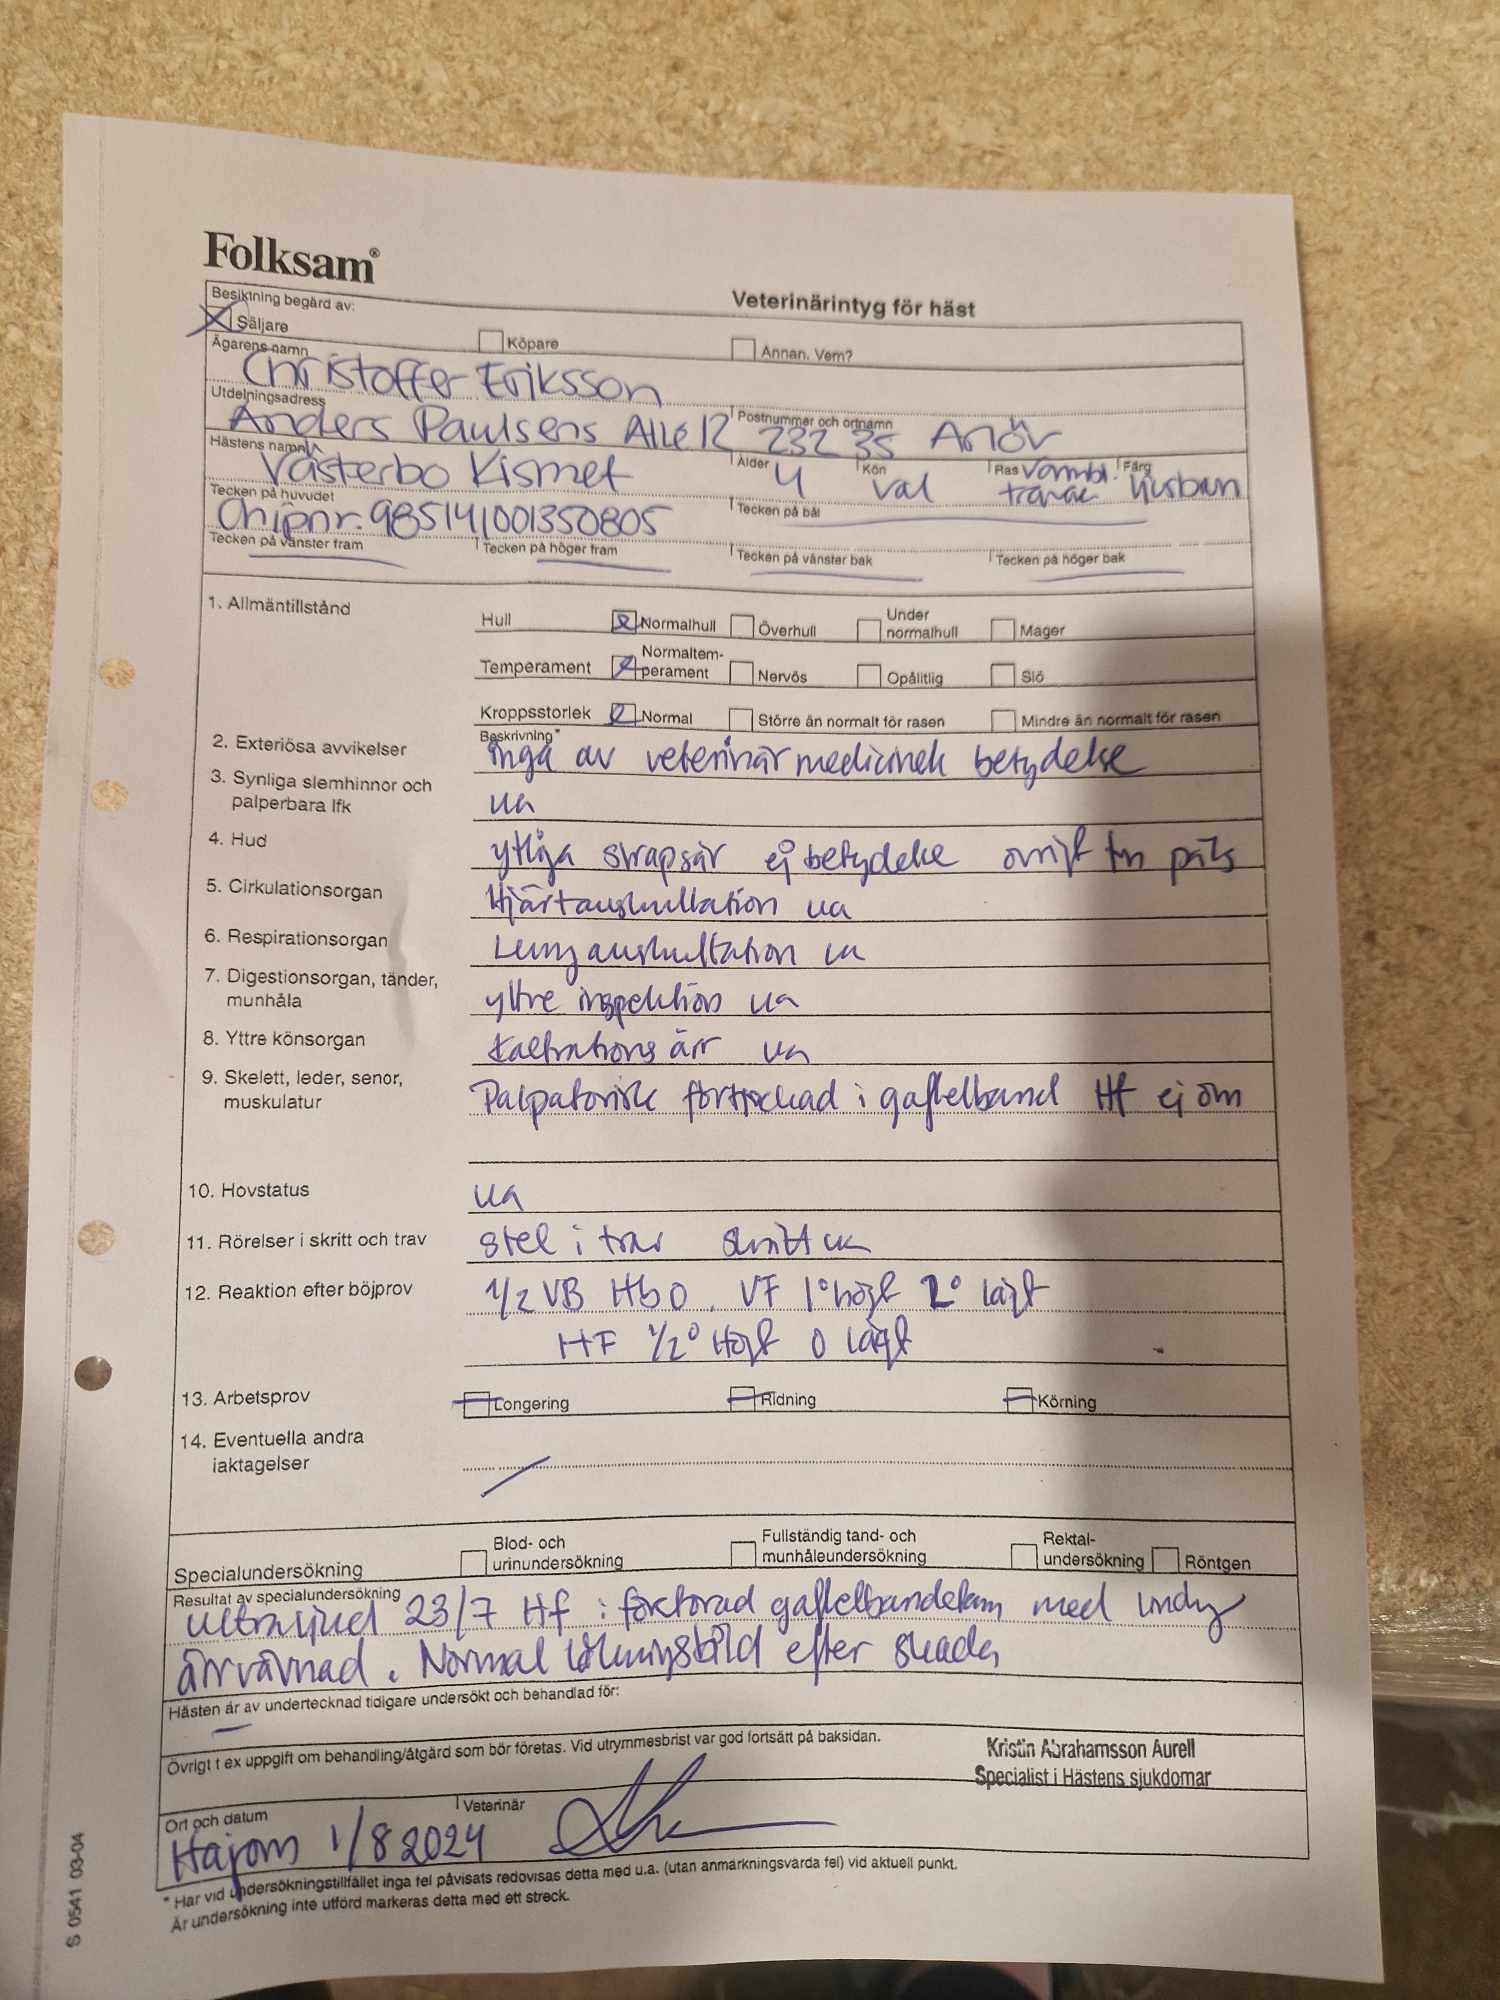 Folksam®
Veterinärintyg för häst
Besiktning begärd av:
Säljare Köpare Annan. Vem?
Ägarens namn
Christoffer Eriksson
Utdelningsadress Postnummer och ortnamn
Anders Paulsens Allé 12 232 35 Arlöv
Hästens namn Ålder Kön Ras Färg
Västerbo Kismet 4 val Varmbl. travare ljusbrun
Tecken på huvudet Tecken på bål
Chipnr. 985141001350805
Tecken på vänster fram Tecken på höger fram Tecken på vänster bak Tecken på höger bak
1. Allmäntillstånd Hull Normalhull Överhull Under normalhull Mager
Temperament Normaltem-perament Nervös Opålitlig Slö
Kroppsstorlek Normal Större än normalt för rasen Mindre än normalt för rasen
Beskrivning*
2. Exteriösa avvikelser inga av veterinärmedicinsk betydelse
3. Synliga slemhinnor och
palperbara lfk ua
4. Hud ytliga skrapsår ej betydelse övrigt päls
5. Cirkulationsorgan Hjärtauskultation ua
6. Respirationsorgan Lungauskultation ua
7. Digestionsorgan, tänder,
munhåla yttre inspektion ua
8. Yttre könsorgan kastrationsärr ua
9. Skelett, leder, senor,
muskulatur Palpatorisk förtjockad i gaffelband Hf ej öm
10. Hovstatus ua
11. Rörelser i skritt och trav stel i trav skritt ua
12. Reaktion efter böjprov 1/2 VB Hb 0. VF 1° högt 2° lågt
HF 1/2° Högt 0 lågt
13. Arbetsprov Longering Ridning Körning
14. Eventuella andra
iaktagelser
Specialundersökning Blod- och urinundersökning Fullständig tand- och munhåleundersökning Rektal-undersökning Röntgen
Resultat av specialundersökning
Ultraljud 23/7 Hf: förstorad gaffelbandskam med lindrig
ärrvävnad. Normal läkningsbild efter skada
Hästen är av undertecknad tidigare undersökt och behandlad för:
Övrigt t ex uppgift om behandling/åtgärd som bör företas. Vid utrymmesbrist var god fortsätt på baksidan.
Kristin Abrahamsson Aurell
Specialist i Hästens sjukdomar
Ort och datum Veterinär
Hajom 1/8 2024
* Har vid undersökningstillfället inga fel påvisats redovisas detta med u.a. (utan anmärkningsvärda fel) vid aktuell punkt.
Är undersökning inte utförd markeras detta med ett streck.
S 0541 03-04